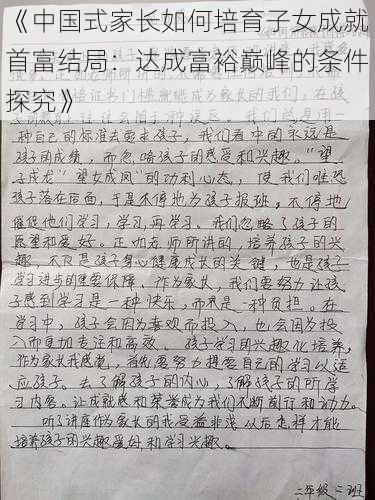 《中国式家长如何培育子女成就
首富结局：达成富裕巅峰的条件
探究》
种自己的标准去要求孩子，我们看中的永远是
孩子的成绩，而忽略孩子的感受和兴趣。"望
子成龙""望女成凤"的功利心态，使我们唯恐
孩子落在后面，于是不停地为孩子报班，不停地
催促他们学习，学习，再学习。我们忽略了孩子的
愿望和爱好。正如老师所讲的，培养孩子的兴
趣不仅是孩子身心健康成长的关键，也是孩子
学习进步的重要保障。作为家长，我们要努力让孩
子感到学习是一种快乐，而不是一种负担。在
学习中，孩子会因为喜欢而投入，也会因为投
入而更加专注和高效。孩子学习的兴趣化培养，
作为家长我感觉，首先要努力提签自己的学习以适
应孩子。去了解孩子的内心，了解孩子的所学
习内容。让成就感和荣誉成为我们不断前行和动力。
听了讲座作为家长的我受益非浅以后怎样才能
培养孩子的兴趣爱好和学习兴趣。
二年级二班